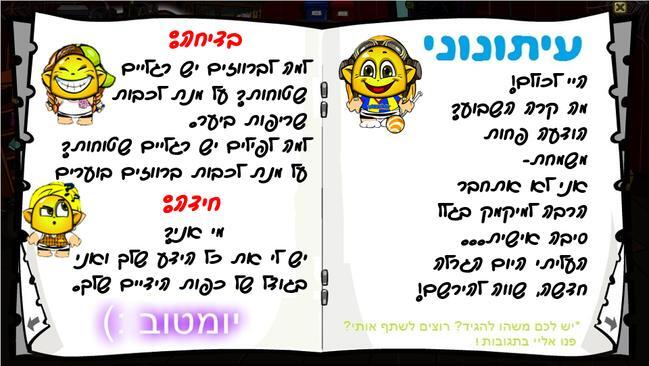 עיתונוני
היי לכולם!
מה קרה השבוע?
הודעה פחות
משמחת-
אני לא אתחבר
הרבה למיקמק בגלל
סיבה אישית...
העליתי היום הגרלה
חדשה, שווה להירשם!
*יש לכם משהו להגיד? רוצים לשתף אותי?
פנו אליי בתגובות!
בדיחה:
למה לברווזים יש רגליים
שטוחות? על מנת לכבות
שריפות ביער.
למה לפילים יש רגליים שטוחות?
על מנת לכבות ברווזים בוערים
חידה:
מי אני?
יש לי את כל הידע שלך ואני
בגודל של כפות הידיים שלך.
יומטוב :)